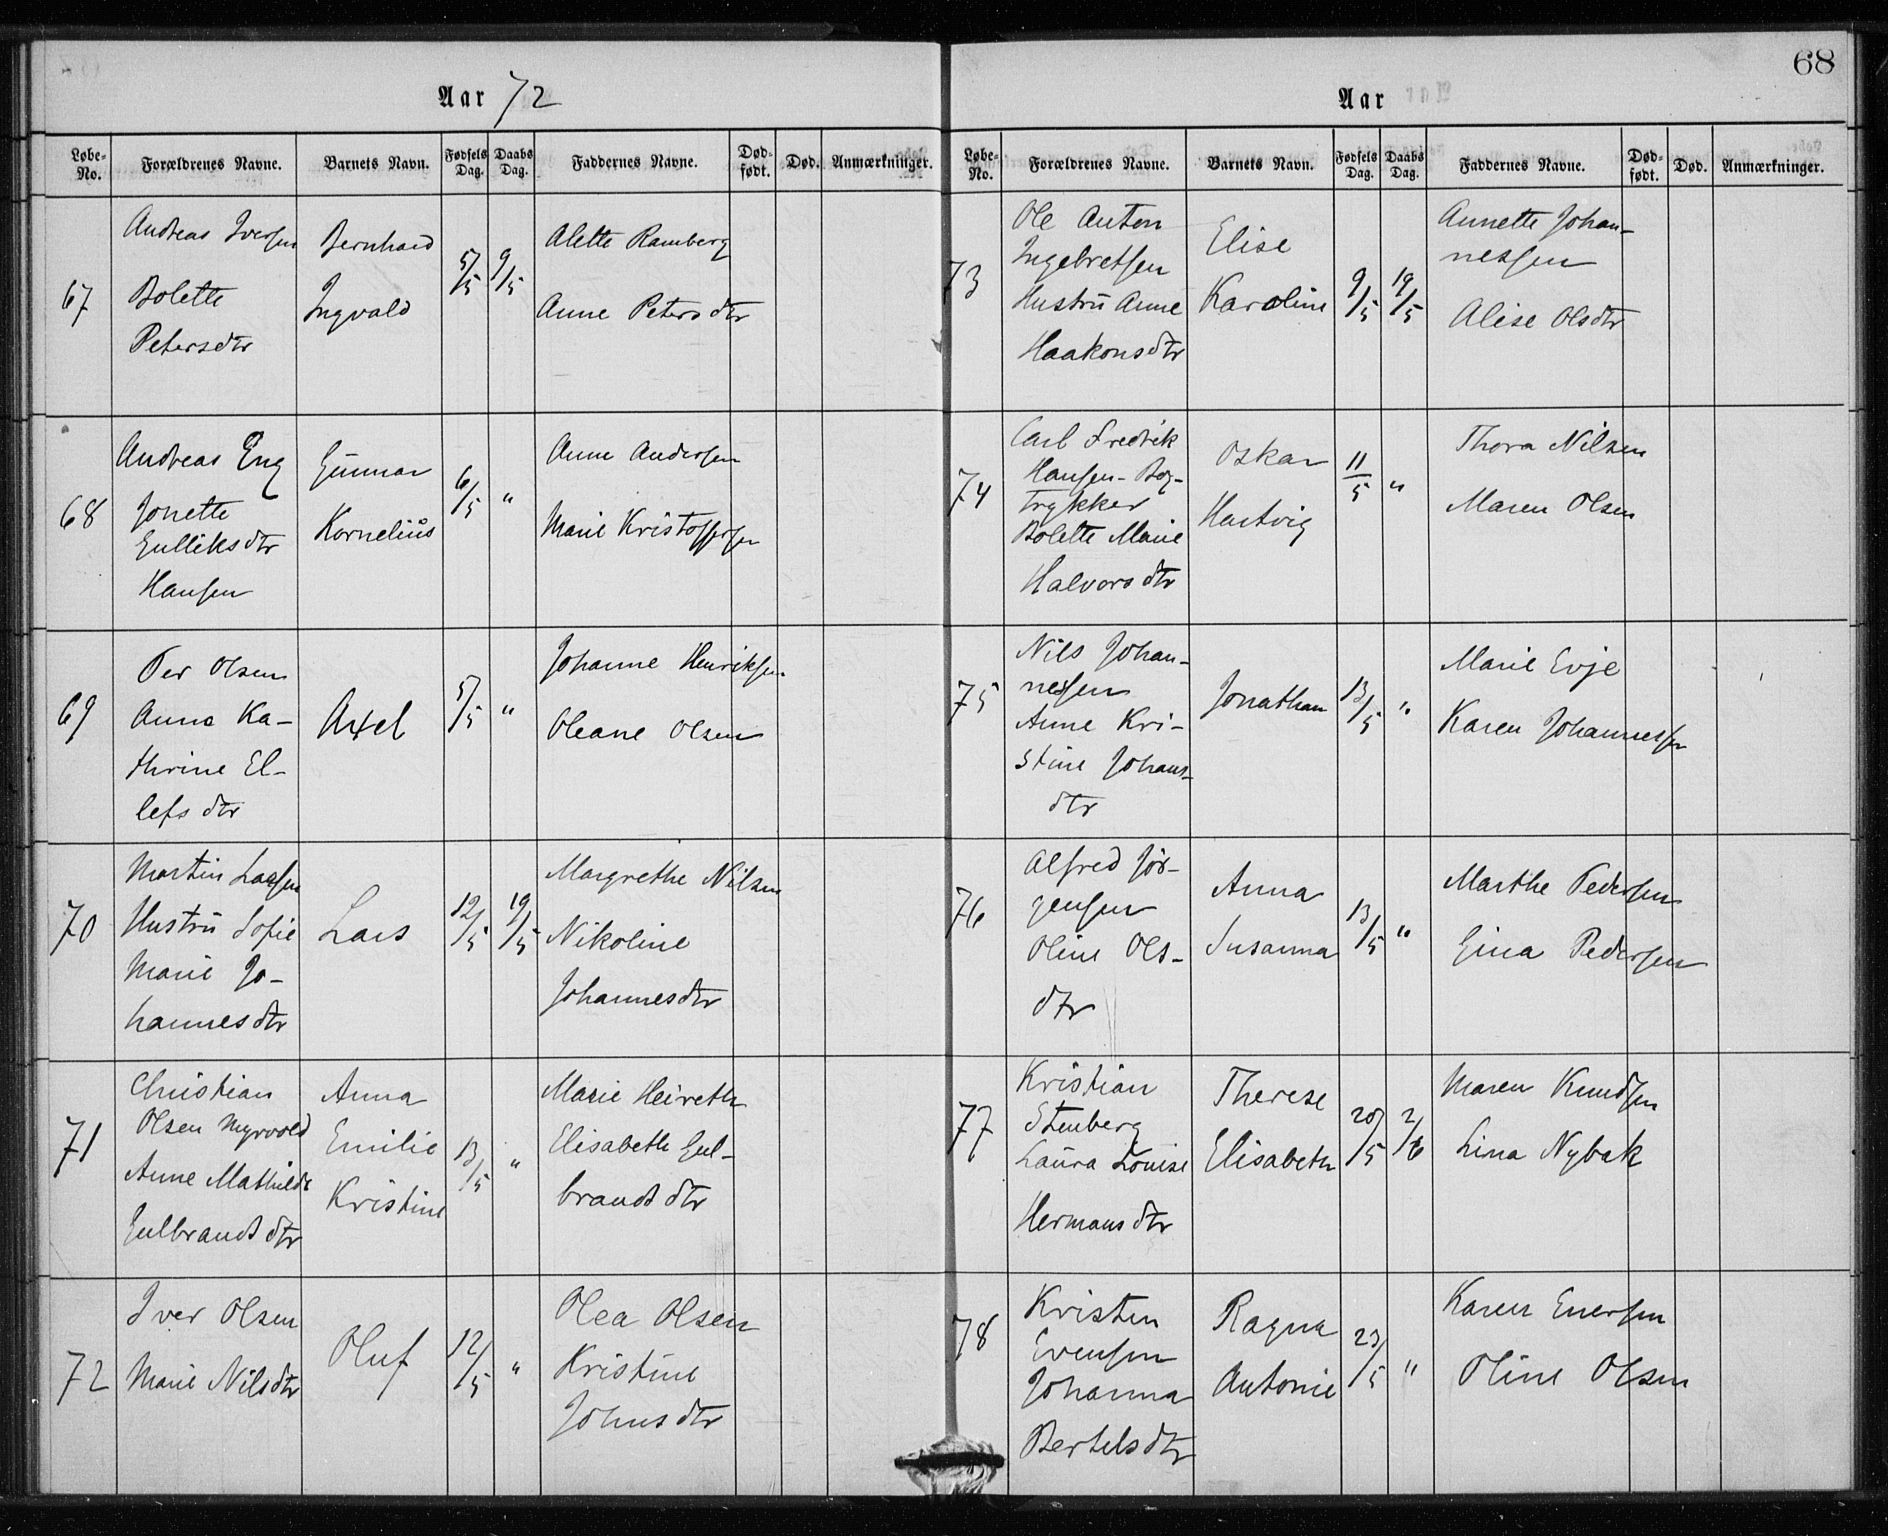 68
Aar 72
Løbe-No. Forældrenes Navne. Barnets Navn. Fødsels Dag. Daabs Dag. Faddernes Navne. Død-født. Død. Anmærkninger.
67
Andreas Iversen
Bolette
Petersdtr
Bernhard
Ingvald
5/5
9/5
Alette Ramberg
Anne Petersdtr
68
Andreas Eng
Jonette
Gulliksdtr
Hansen
Gunnar
Kornelius
6/5
"
Anne Andersen
Marie Kristoffersen
69
Per Olsen
Anna Ka-
thrine El-
lefsdtr
Axel
5/5
"
Johanne Henriksen
Oleane Olsen
70
Martin Larsen
Hustru Sofie
Marie Jo-
hannesdtr
Lars
12/5
19/5
Margrethe Nilsen
Nikoline
Johannesdtr
71
Christian
Olsen Myrvold
Anne Mathilde
Gulbrandsdtr
Anna
Emilie
Kristine
13/5
"
Marie Heireth
Elisabeth Gul-
brandsdtr
72
Iver Olsen
Marie Nilsdtr
Oluf
12/5
"
Olea Olsen
Kristine
Johnsdtr
Aar
Løbe-No. Forældrenes Navne. Barnets Navn. Fødsels Dag. Daabs Dag. Faddernes Navne. Død-født. Død. Anmærkninger.
73
Ole Anton
Ingebretsen
Hustru Anne
Haakonsdtr
Elise
Karoline
9/5
19/5
Annette Johan-
nessen
Alise Olsdtr
74
Carl Fredrik
Hansen - Bog-
trykker
Bolette Marie
Halvorsdtr
Oskar
Hartvig
11/5
"
Thora Nilsen
Maren Olsen
75
Nils Johan-
nessen
Anne Kri-
stine Johans-
dtr
Jonathan
13/5
"
Marie Evje
Karen Johannessen
76
Alfred Jør-
gensen
Oline Ols-
dtr
Anna
Susanna
13/5
"
Marthe Pedersen
Gina Pedersen
77
Kristian
Stenberg
Laura Louise
Hermansdtr
Therese
Elisabeth
20/5
2/6
Maren Knudsen
Lina Nybak
78
Kristen
Evensen
Johanna
Bertelsdtr
Ragna
Antonie
23/5
"
Karen Enersen
Oline Olsen